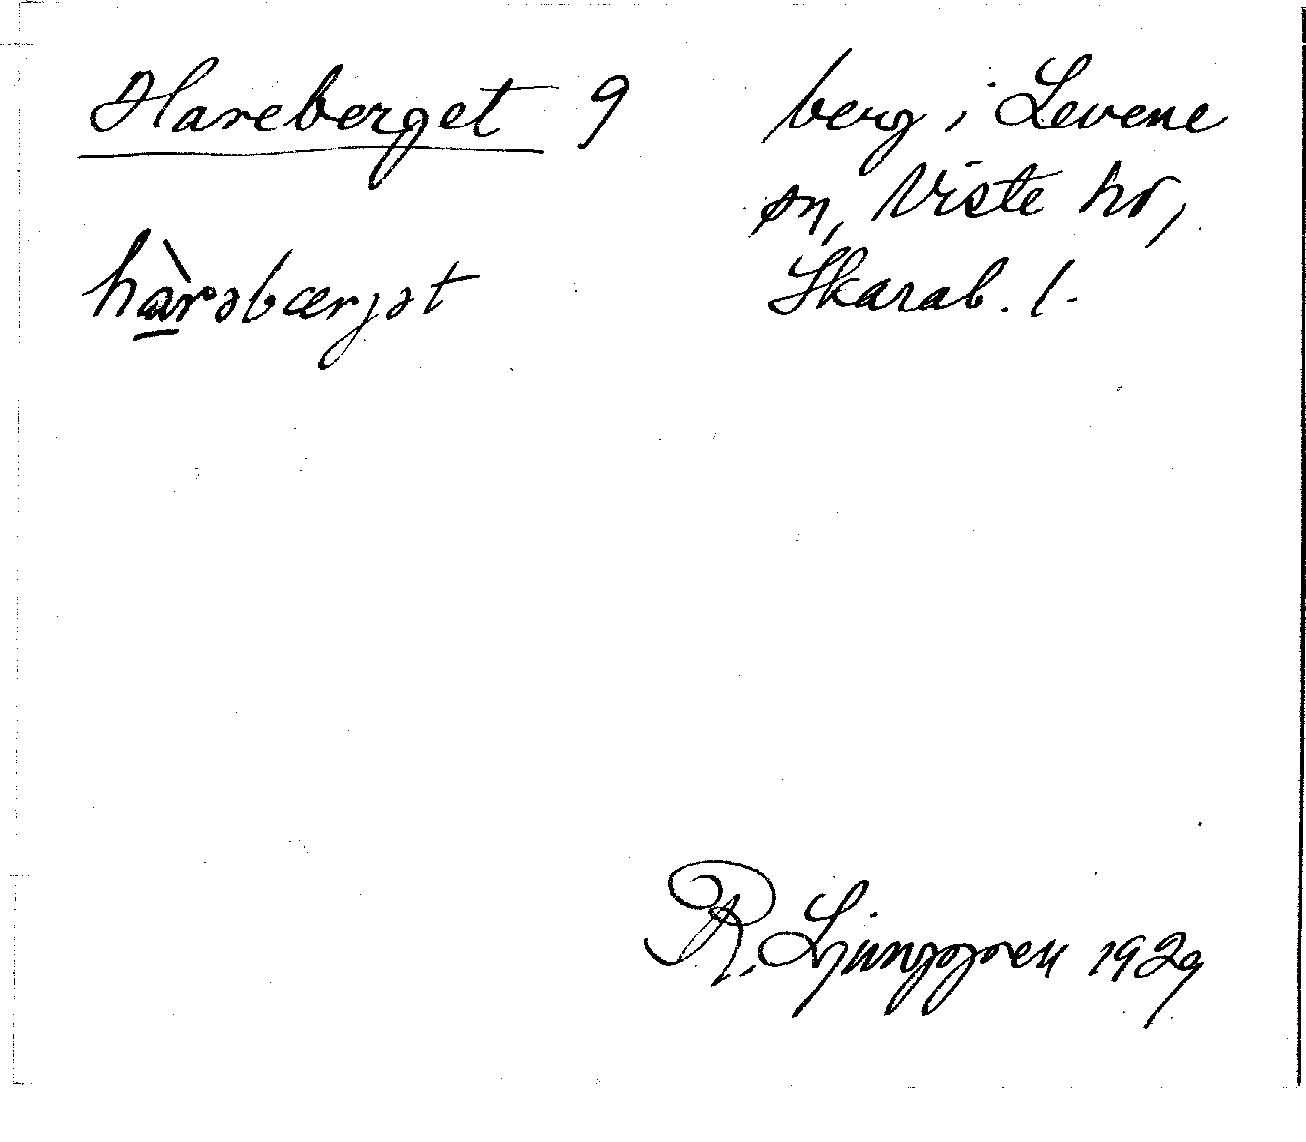 Hareberget 9
hàrəbærjət
berg i Levene
sn, Viste hd,
Skarab. l.
R. Ljunggren 1929